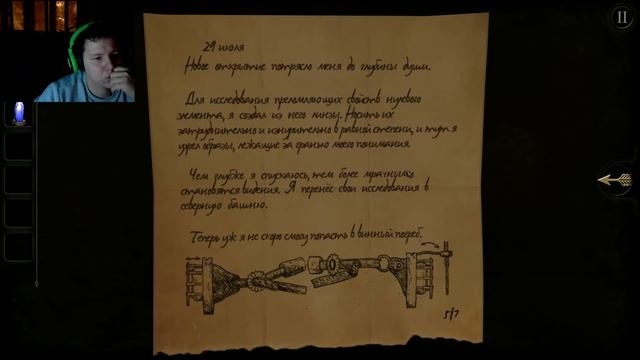 29 июля
Новое открытие потрясло меня до глубины души.
Для исследования преломляющих свойств нулевого
элемента, я создал из него линзы. Носить их
затруднительно и изнурительно в равной степени, и тут я
узрел образы, лежащие за гранью моего понимания.
Чем глубже я спускаюсь, тем более мрачными
становятся видения. Я перенёс свои исследования в
северную башню.
Теперь уж я не скоро смогу попасть в винный погреб.
5/7